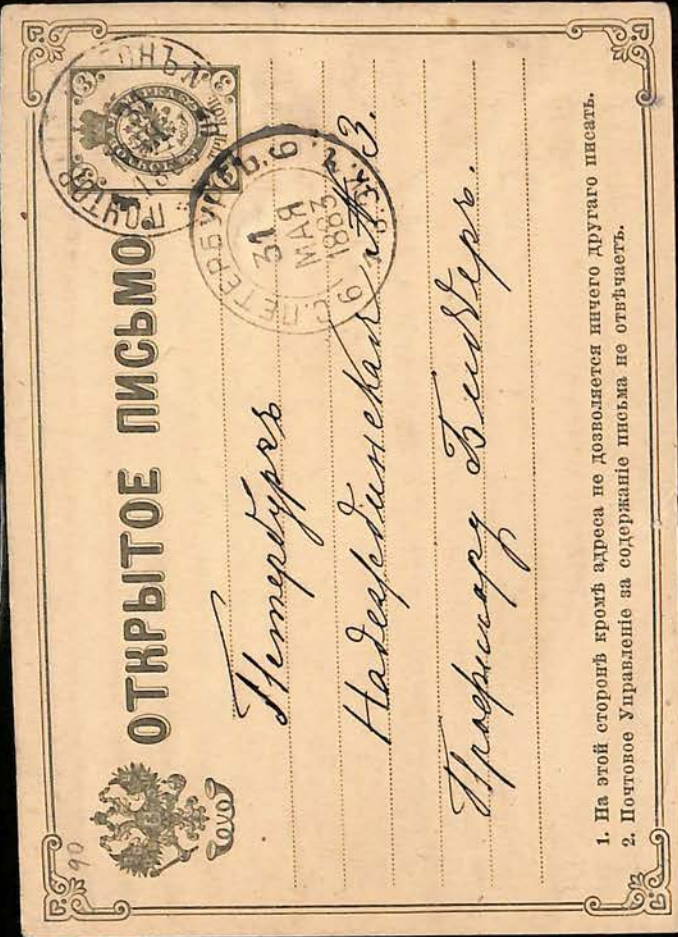 ОТКРЫТОЕ ПИСЬМО
3
3
С.ПЕТЕРБУРГЪ. 6
31
МАЯ
1883
Петербургъ
Надеждинская № 3.
Профессору Бильдеръ.
1. На этой сторонѣ кромѣ адреса не дозволяется ничего другаго писать.
2. Почтовое Управленіе за содержаніе письма не отвѣчаетъ.
90